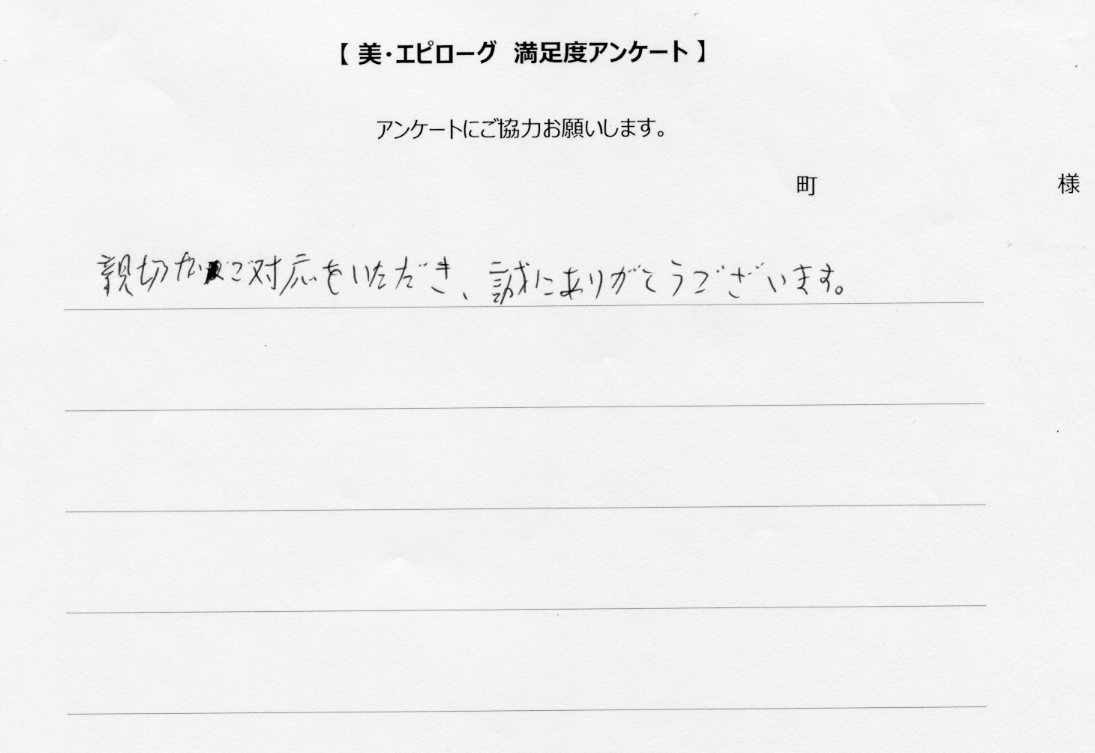 【 美・エピローグ 満足度アンケート 】
アンケートにご協力お願いします。
町 様
親切なご対応をいただき、誠にありがとうございます。